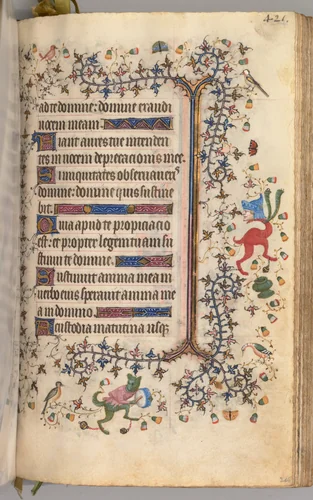 421.
ad te domine: domine exaudi
vocem meam.
Fiant aures tue intenden
tes in vocem deprecacionis mee.
Si iniquitates observaveris
domine: domine quis sustine
bit.
Quia apud te propiciacio
est: et propter legem tuam sus
tinui te domine.
Sustinuit anima mea in
verbo eius speravit anima me
a in domino.
A custodia matutina usq;